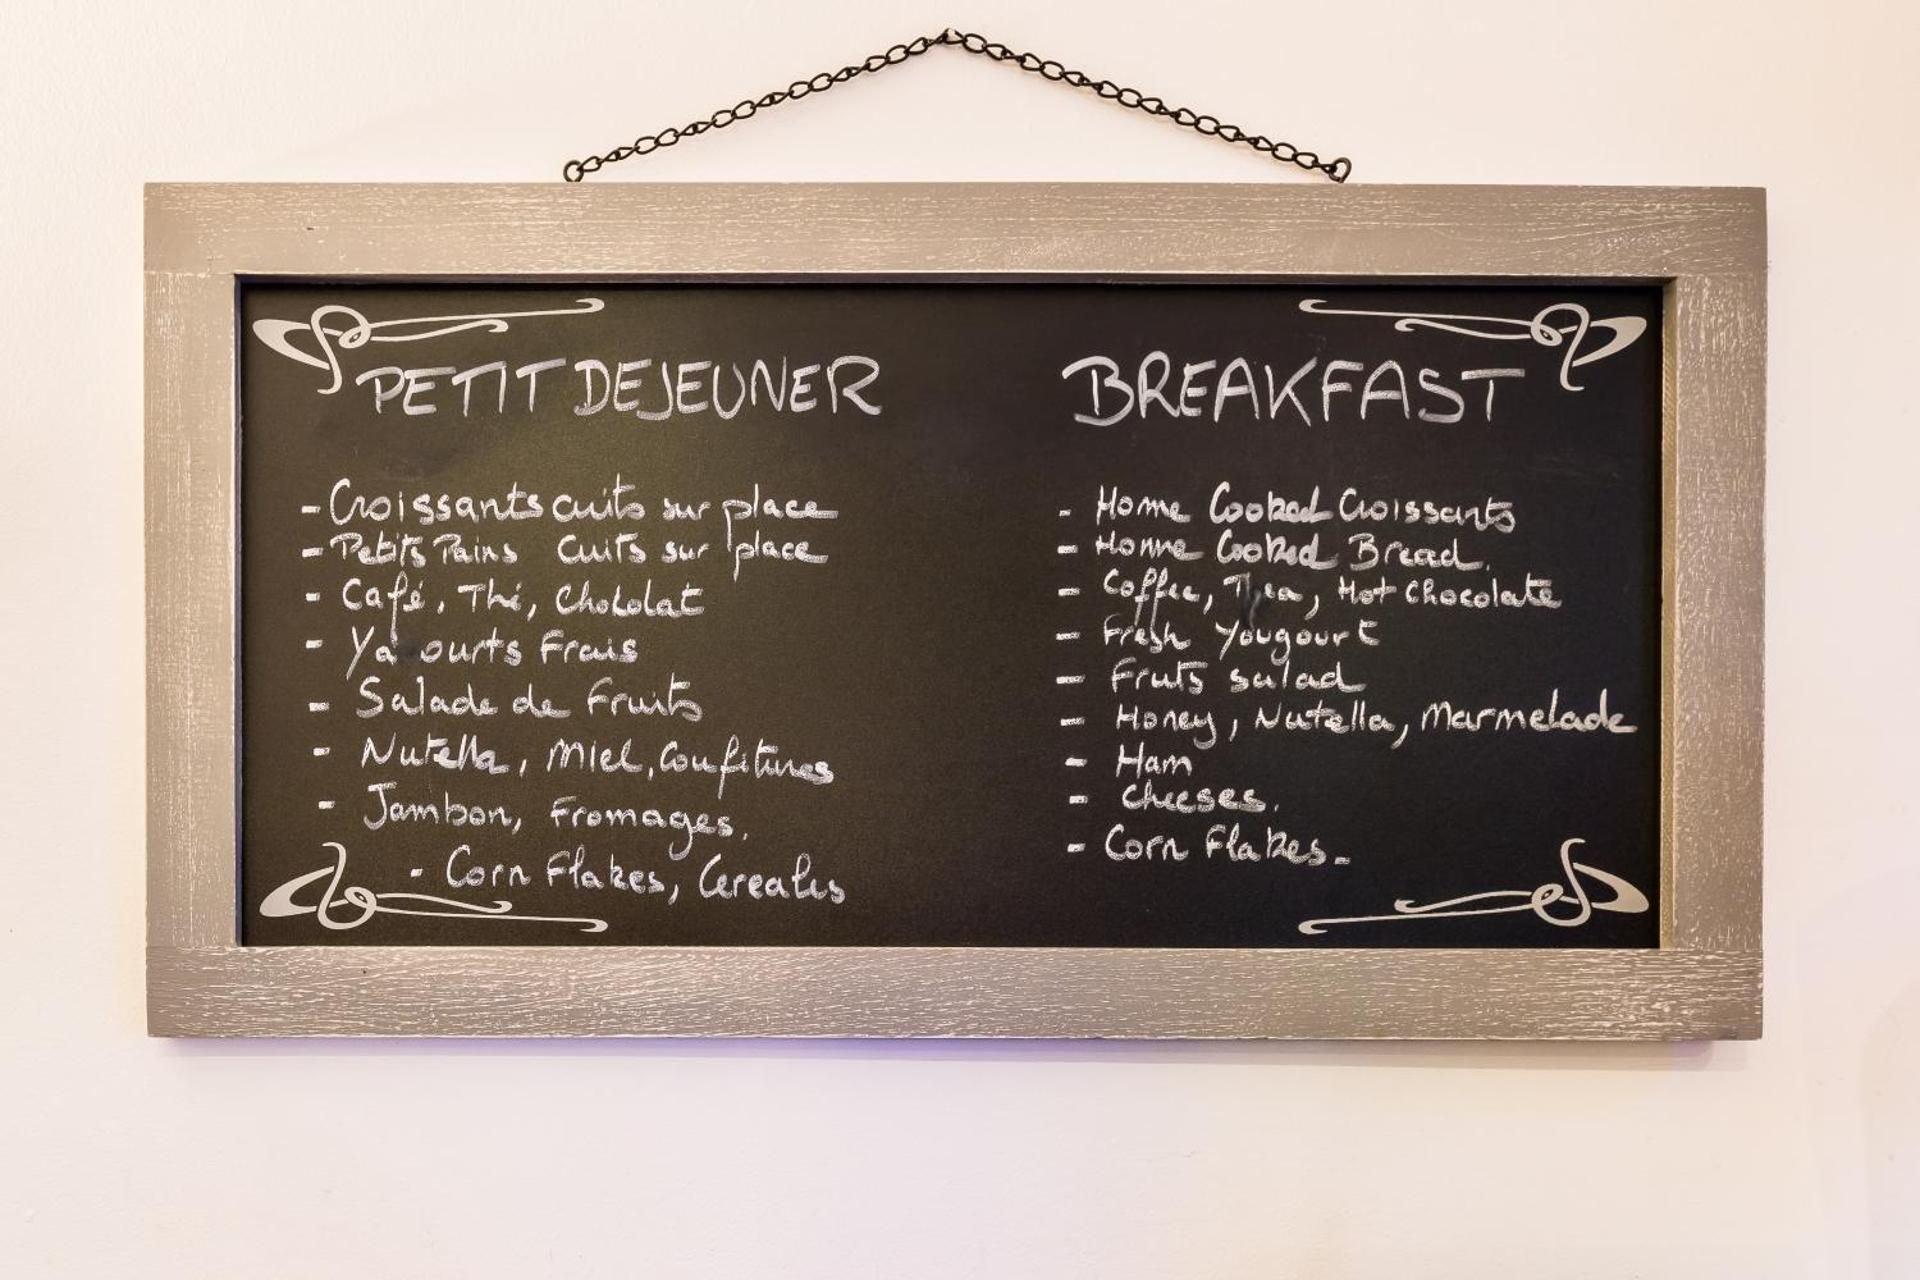 PETIT DEJEUNER
- Croissants cuits sur place
- Petits Pains cuits sur place
- Café, Thé, Chokolat
- Ya ourts Frais
- Salade de Fruits
- Nutella, Miel, Confitures
- Jambon, Fromages.
- Corn Flakes, Cereales
BREAKFAST
- Home Cooked Croissants
- Home Cooked Bread.
- Coffee, Thea, Hot Chocolate
- Fresh Yougourt
- Fruts salad
- Honey, Nutella, Marmelade
- Ham
- Cheeses.
- Corn Flakes-